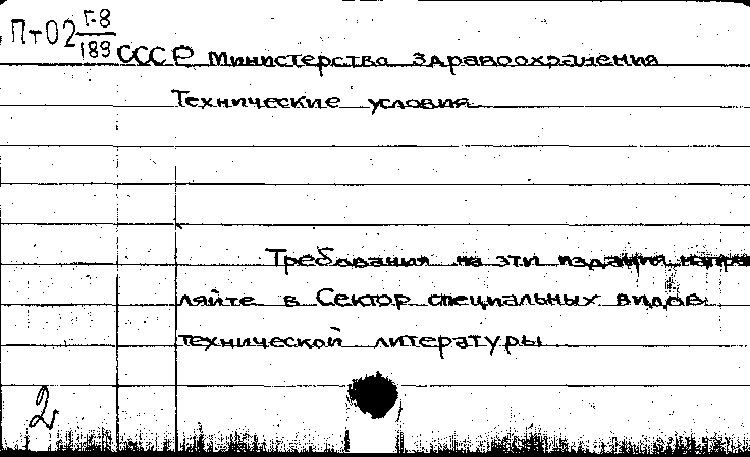 Пт02 Г-8
189
СССР Министерство здравоохранения
Технические условия.
Требования на эти издания направ
ляйте в Сектор специальных видов
технической литературы
2